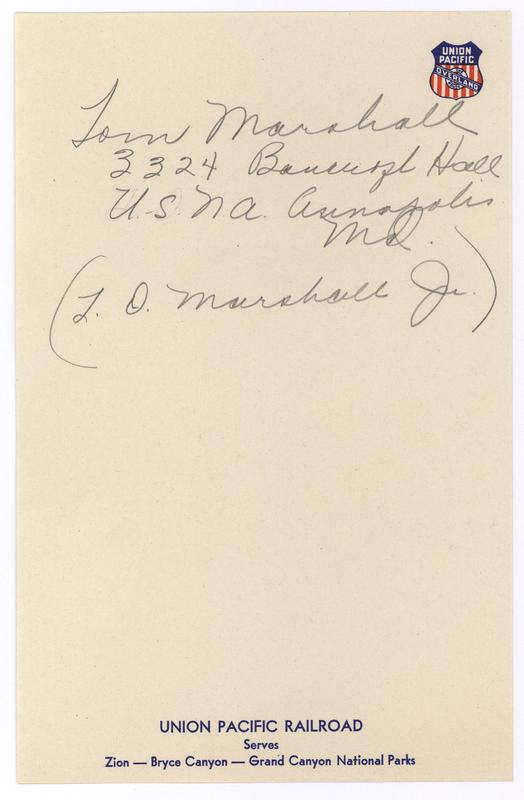 UNION
PACIFIC
OVERLAND
Tom Marshall
3324 Bancroft Hall
U.S.N.A. Annapolis
Md.
(T. O. Marshall Jr.)
UNION PACIFIC RAILROAD
Serves
Zion — Bryce Canyon — Grand Canyon National Parks